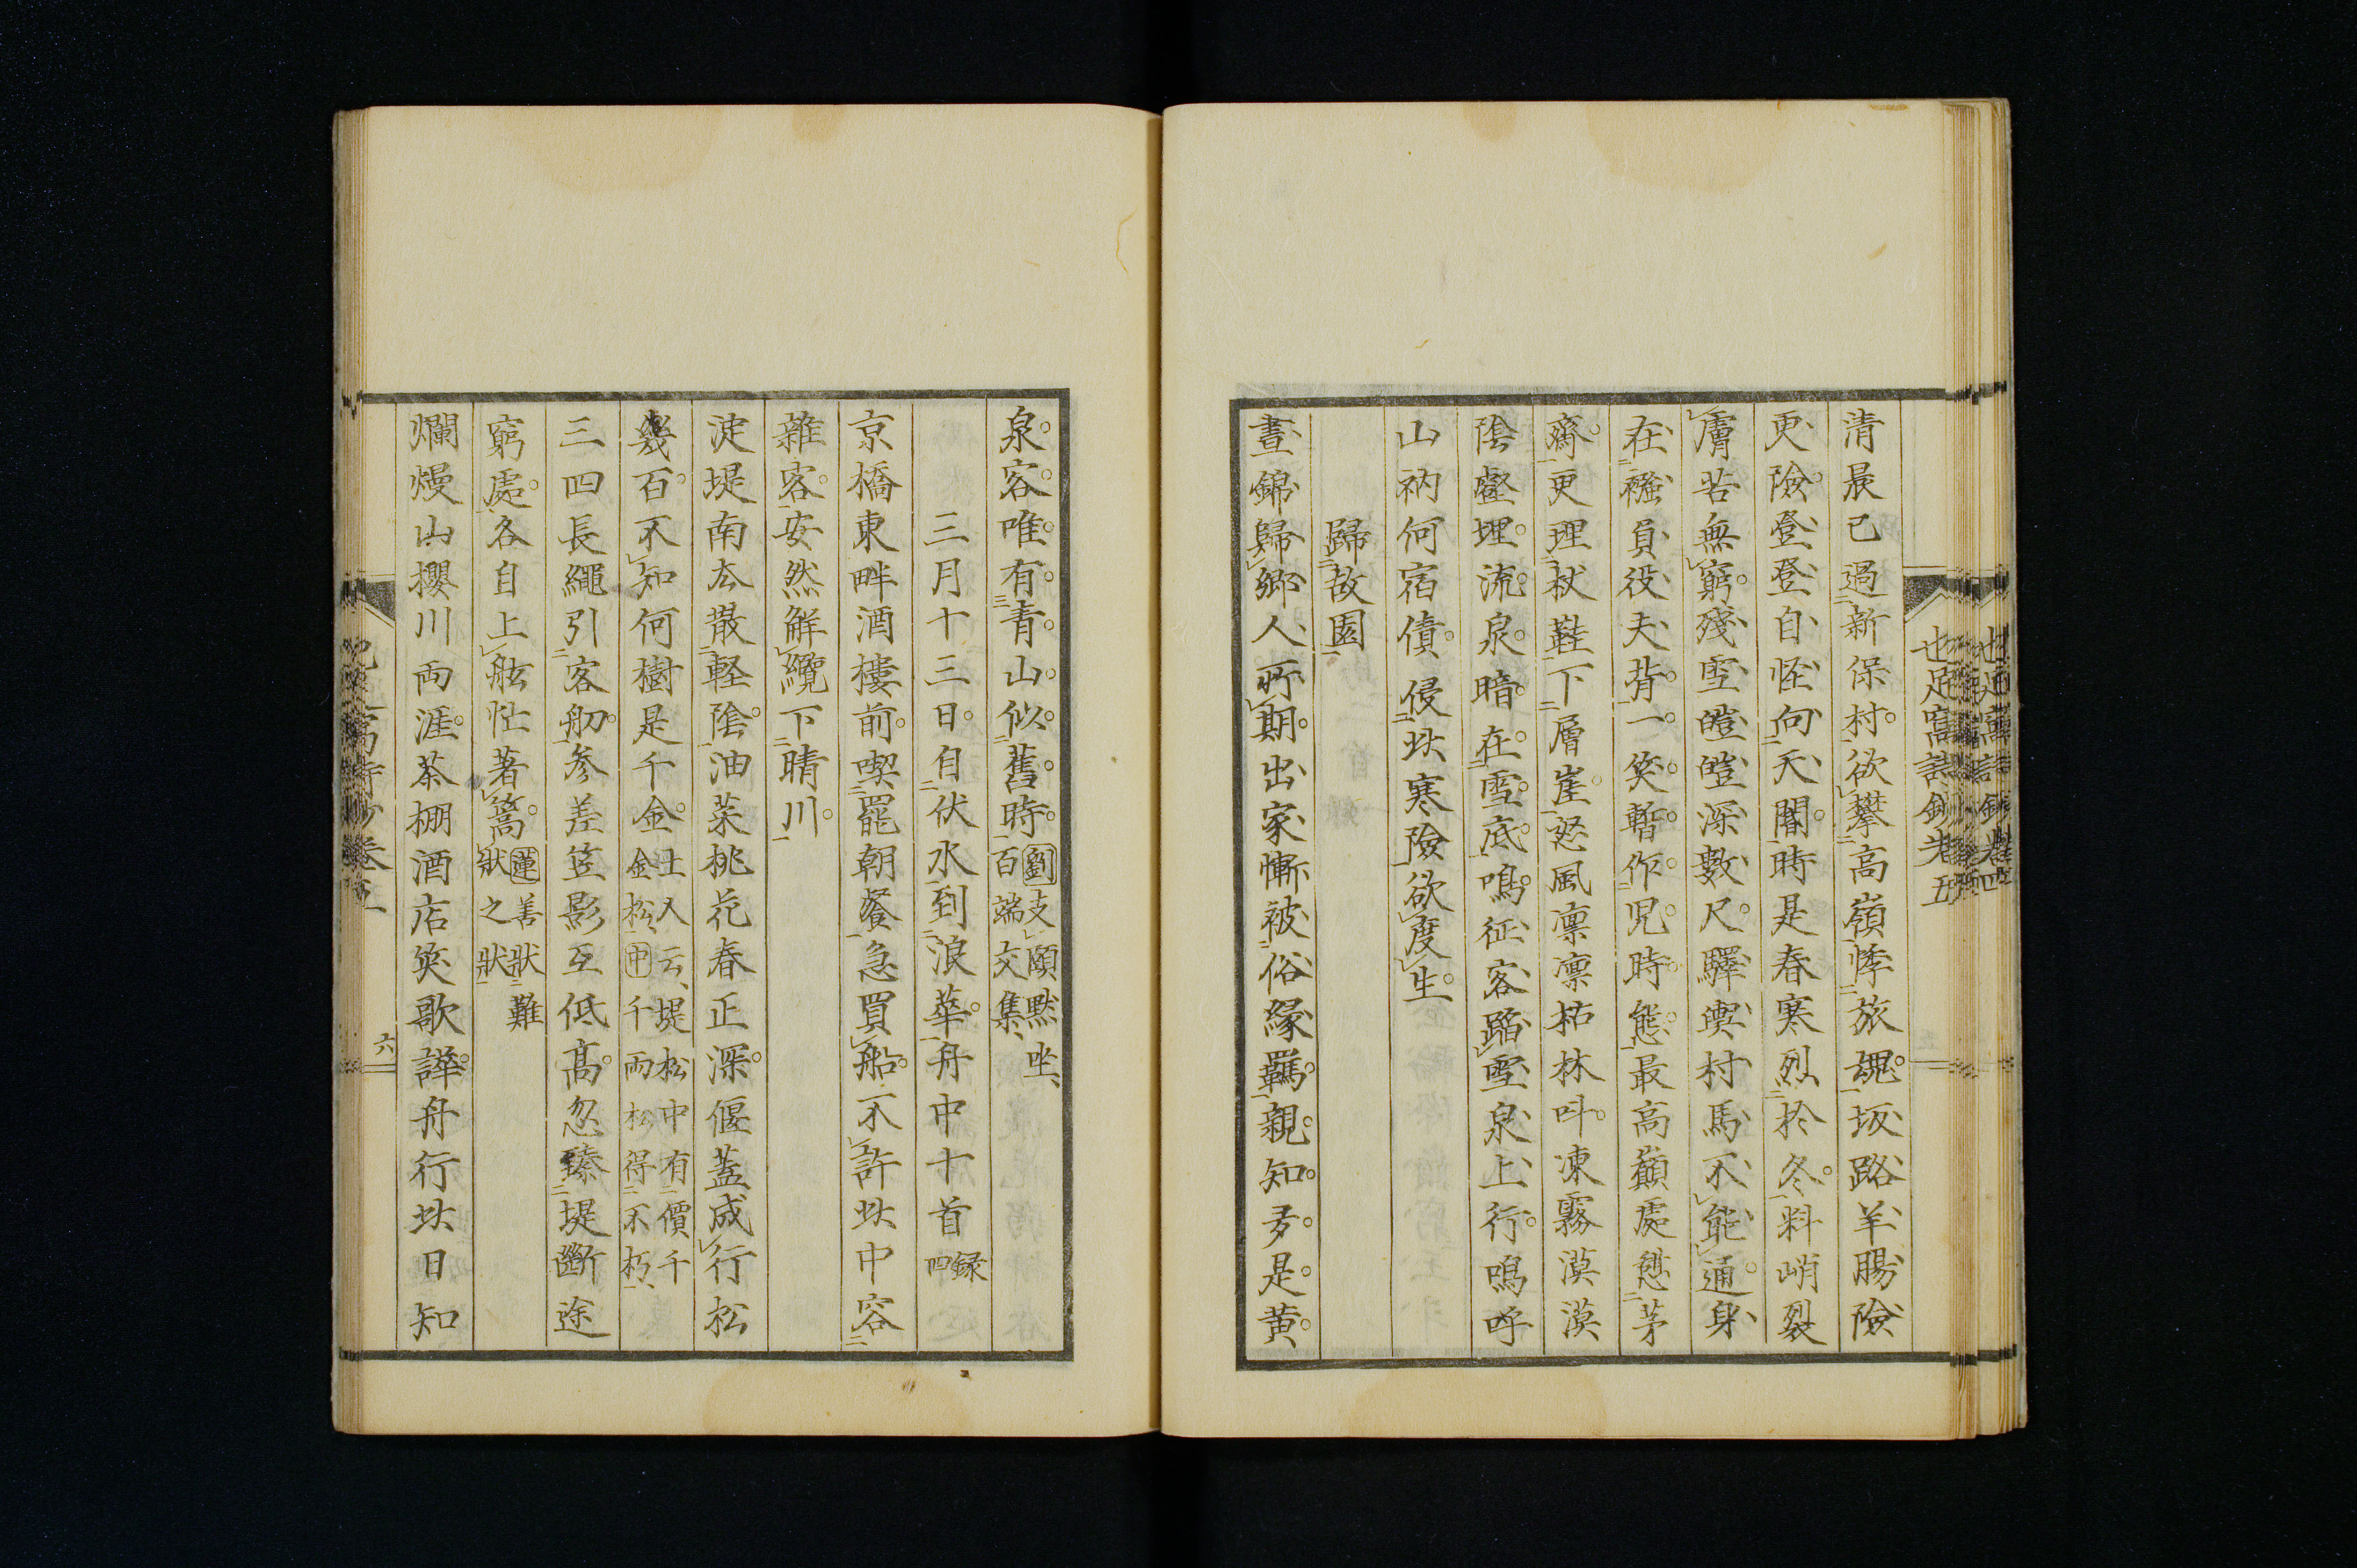 也足窩詩鈔卷五
清晨已過新保村欲攀高嶺悸旅魂坂路羊腸險
更險登登自怪向天閽時是春寒烈於冬料峭裂
膚苦無窮殘雪皚皚深數尺驛輿村馬不能通身
在襁負役夫背一笑暫作兒時態最高巔處憩茅
齋更理杖鞋下層崖怒風凛凛枯林吽凍霧漠漠
陰壑埋流泉暗在雪底鳴征客蹈雪泉上行嗚呼
山衲何宿債侵此寒險欲度生
歸故園
晝錦歸鄉人所期出家慚被俗緣羈親知多是黄
泉客唯有青山似舊時劉支頤默坐百端交集
三月十三日自伏水到浪華舟中十首録四
京橋東畔酒樓前喫罷朝餐急買船不許此中容
雜客安然解纜下晴川
淀堤南去散輕陰油菜桃花春正深偃蓋成行松
幾百不知何樹是千金土人云堤松中有價千金松中千兩松得不朽
三四長繩引客舠參差笠影互低高忽臻堤斷途
窮處各自上舷忙著篙蓮善狀難狀之狀
爛熳山櫻川兩涯茶棚酒店笑歌譁舟行此日知
六